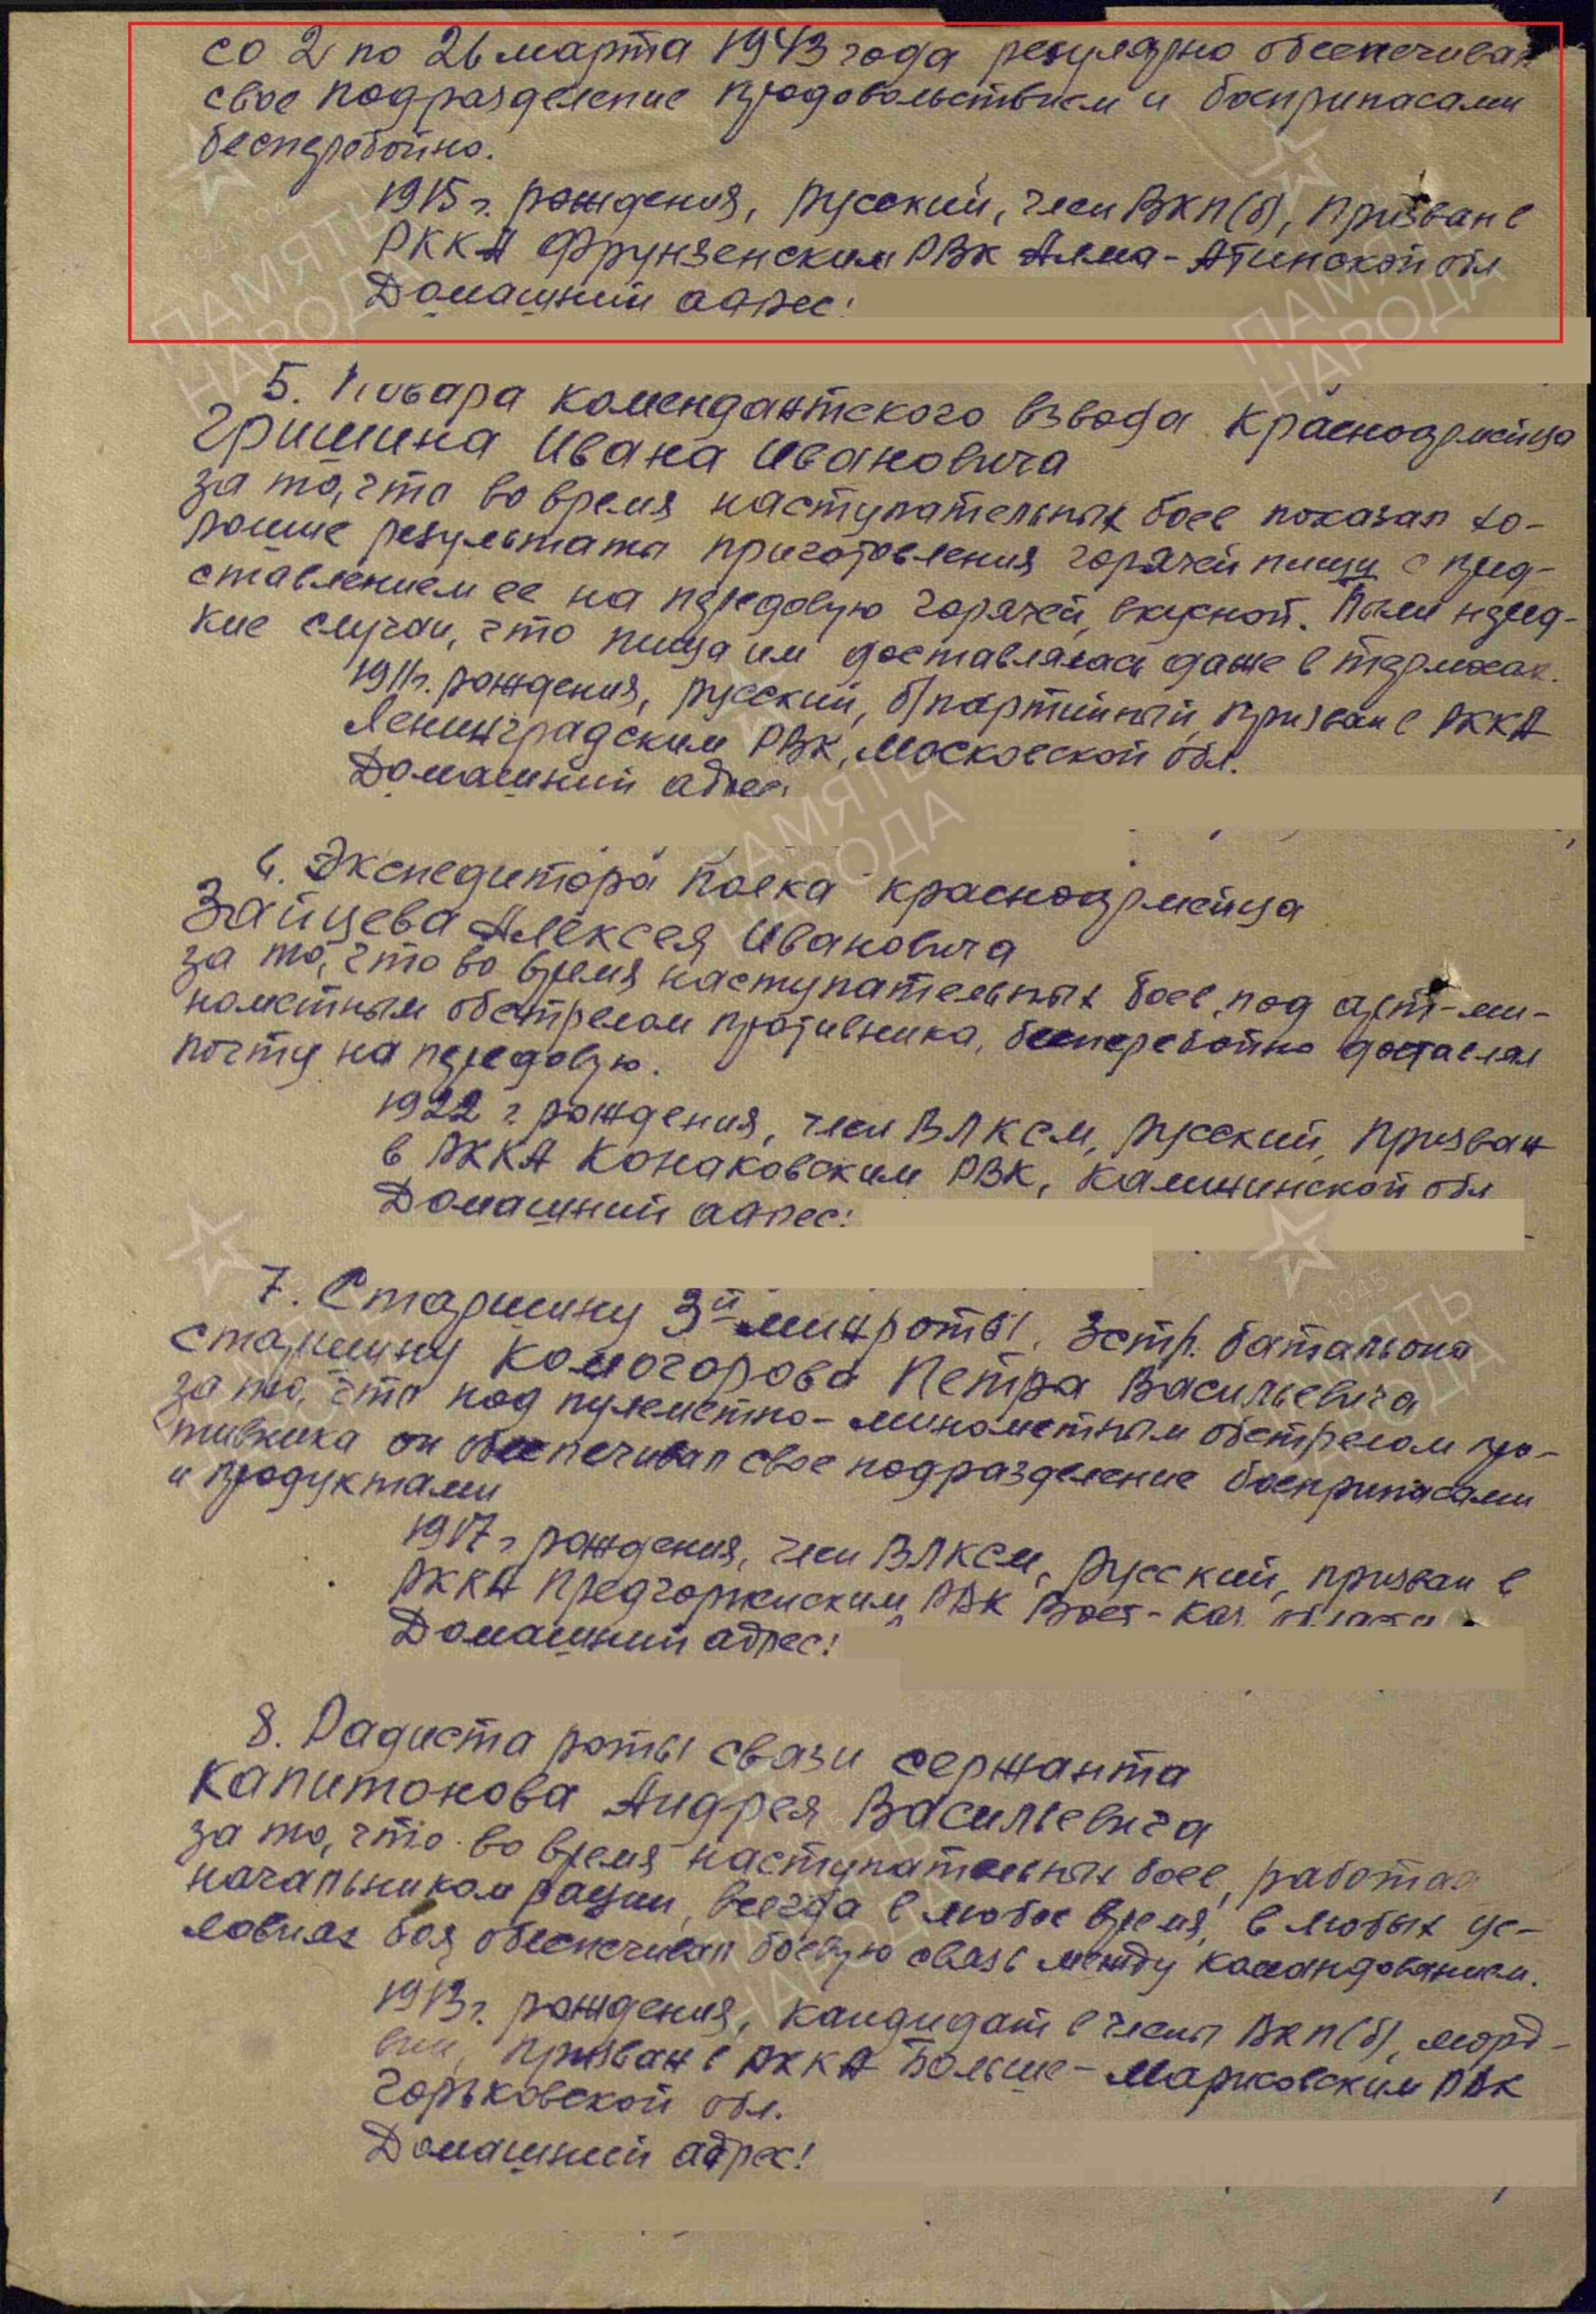 со 2 по 26 марта 1943 года регулярно обеспечивал
свое подразделение продовольствием и боеприпасами
бесперебойно.
1915 г. рождения, русский, член ВКП(б), призван в
РККА Фрунзенским РВК Алма-Атинской обл
Домашний адрес:
5. Повара комендантского взвода красноармейца
Гришина Ивана Ивановича
за то, что во время наступательных боев показал хо-
рошие результаты приготовления горячей пищи с пред-
ставлением ее на передовую горячей, вкусной. Были неред-
кие случаи, что пища им доставлялась даже в термосах.
1911г. рождения, русский, б/партийный, призван в РККА
Ленинградским РВК, Московской обл.
Домашний адрес:
6. Экспедитора полка красноармейца
Зайцева Алексея Ивановича
за то, что во время наступательных боев, под арт-ми-
нометным обстрелом противника, бесперебойно доставлял
почту на передовую.
1922 г рождения, член ВЛКСМ, русский, призван
в РККА Конаковским РВК, Калининской обл
Домашний адрес:
7. Старшину 3й минроты. 3стр. батальона
старшину Комогорова Петра Васильевича
за то, что под пулеметно-минометным обстрелом про-
тивника он обеспечивал свое подразделение боеприпасами
и продуктами
1917 г рождения, член ВЛКСМ, русский, призван в
РККА Предгорненским РВК Вост-Каз. области
Домашний адрес:
8. Радиста роты связи сержанта
Капитонова Андрея Васильевича
за то, что во время наступательных боев, работая
начальником рации, всегда в любое время, в любых ус-
ловиях боя обеспечивал боевую связь между командованием.
1913г. рождения, кандидат в члены ВКП(б), морд-
вин, призван в РККА Больше-Марисовским РВК
Горьковской обл.
Домашний адрес:
ПАМЯТЬ
НАРОДА